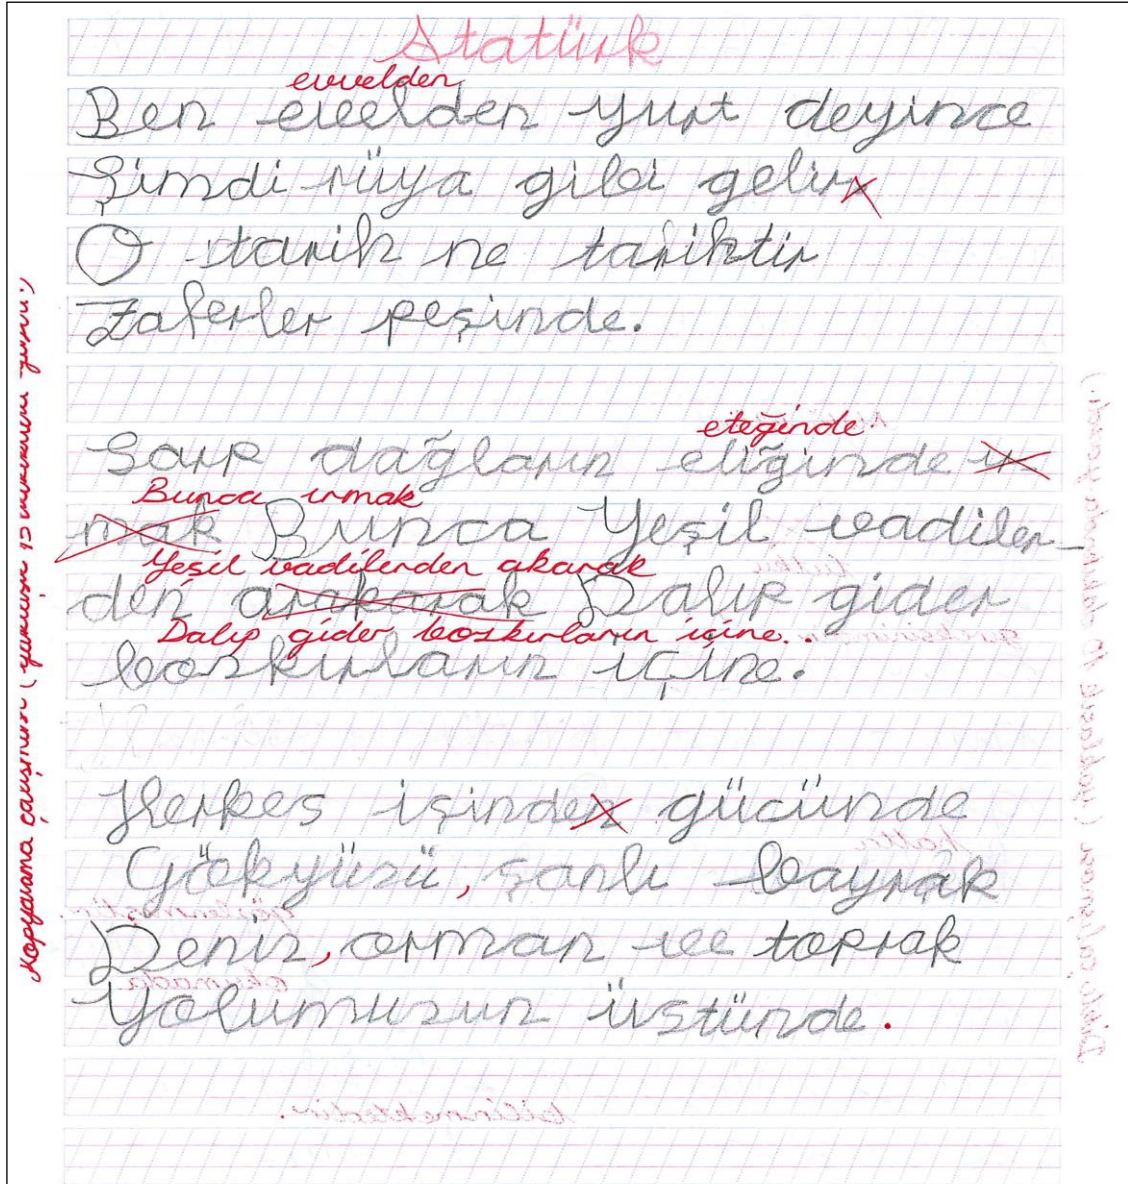 Atatürk
evvelden
Ben evelden yurt deyince
Şimdi rüya gibi gelir
O tarih ne tarihtir
Zaferler peşinde.
eteğinde
Sarp dağların etiğinde ır
Bunca ırmak
mak Bunca Yeşil vadiler-
Yeşil vadilerden akarak
den arakarak Dalıp gider
Dalıp gider bozkırların içine.
bozkırların içine.
Herkes işinden gücünde
Gökyüzü, şanlı bayrak
Deniz, orman ve toprak
Yolumuzun üstünde.
Kopyalama çalışması (yaklaşık 15